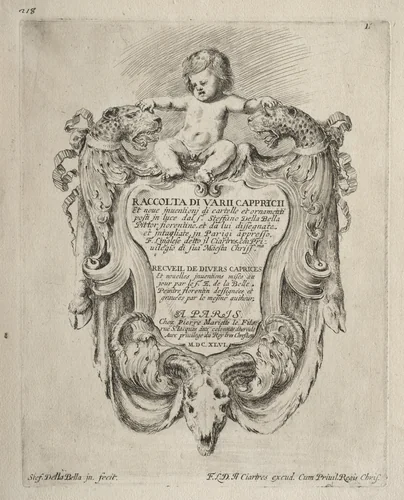 218
1.
RACCOLTA DI VARII CAPPRICII
Et noue inuentioni di cartelle et ornamenti
posti in luce dal s.r Steffano Della Bella
Pittor fiorentino, et da lui disegnate
et intagliate in Parigi appresso
F. L'anglese detto il Ciartres con Pri-
uilegio di sua Maestà Christ.ma
RECUEIL DE DIVERS CAPRICES
Et nouelles inuentions mises au
jour par le s.r E. de la Belle
Peintre florentin desseignées et
grauées par le mesme autheur,
A PARIS
Chez Pierre Mariette le Fils
rue S. Jacques aux
Auec priuilege du Roy tres Chrestien
M.D.C.XLVI.
Stef. Della Bella in. fecit.
F. L. D. Il Ciartres excud. Cum Priuil. Regis Chris.